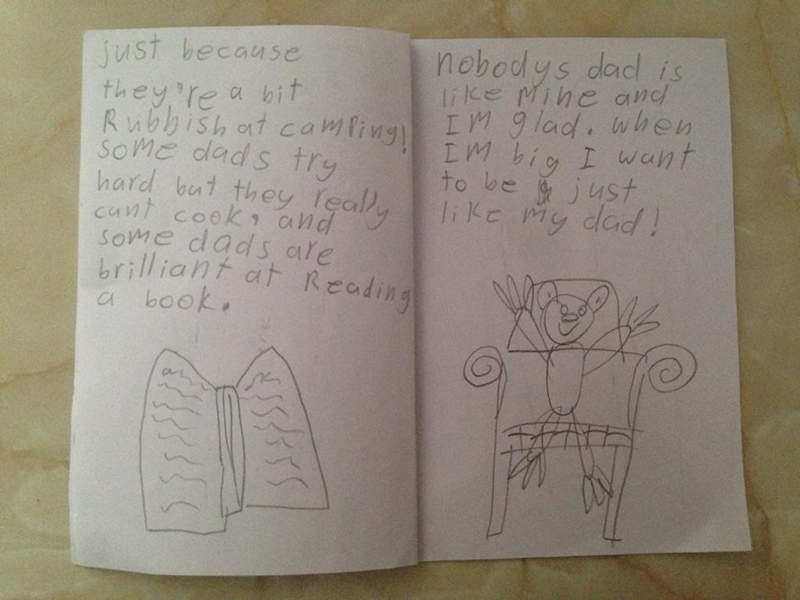 just because
they're a bit
Rubbish at camping!
some dads try
hard but they really
cant cook, and
some dads are
brilliant at Reading
a book.
nobodys dad is
like mine and
IM glad. when
IM big I want
to be just
like my dad!